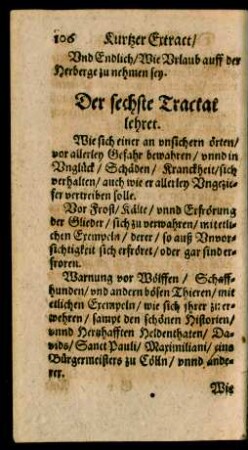 106 Kurtzer Extract/
Vnd Endlich/ Wie Vrlaub auff der
Herberge zu nehmen sey.
Der sechste Tractat
lehret.
Wie sich einer an vnsichern örten/
vor allerley Gefahr bewahren/ vnnd in
Vnglück/ Schäden/ Kranckheit/ sich
verhalten/ auch wie er allerley Vngezie-
fer vertreiben solle.
Vor Frost/ Kälte/ vnnd Erfrörung
der Glieder/ sich zu verwahren/ mit etli-
chen Exempeln/ derer/ so auß Vnvor-
sichtigkeit sich erfröret/ oder gar sind er-
froren.
Warnung vor Wölffen/ Schaff-
hunden/ vnd andern bösen Thieren/ mit
etlichen Exempeln/ wie sich jhrer zu er-
wehren/ sampt den schönen Historien/
vnnd Hertzhafften Heldenthaten/ Da-
vids/ Sanct Pauli/ Maximiliani/ eins
Bürgermeisters zu Cölln/ vnnd ande-
rer.
Wie